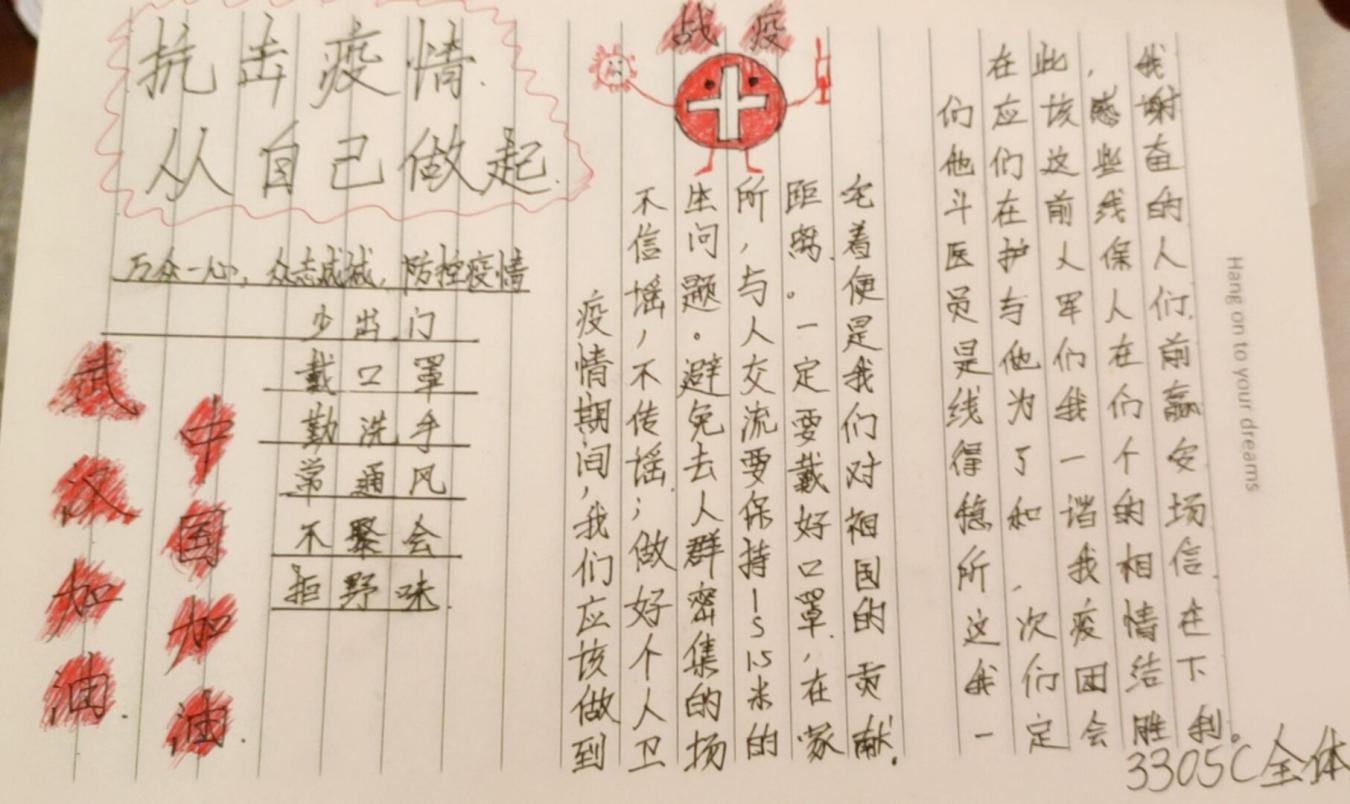 抗击疫情.
从自己做起.
万众一心,众志成城,防控疫情
少出门
戴口罩
勤洗手
常通风
不聚会
拒野味.
武汉加油.
中国加油.
战疫
疫情期间,我们应该做到
不信谣,不传谣;做好个人卫
生问题。避免去人群密集的场
所,与人交流要保持1~1.5米的
距离。一定要戴好口罩,在家
宅着便是我们对祖国的贡献.
在此,我
们应该感谢
他们这些奋
斗在前线的
医护人保人
员与军人们.
是他们在前
线为我们赢
得了一个安
稳和谐的场
所,我相信
这次疫情在
我们团结下
一定会胜利。
Hang on to your dreams
3305C全体